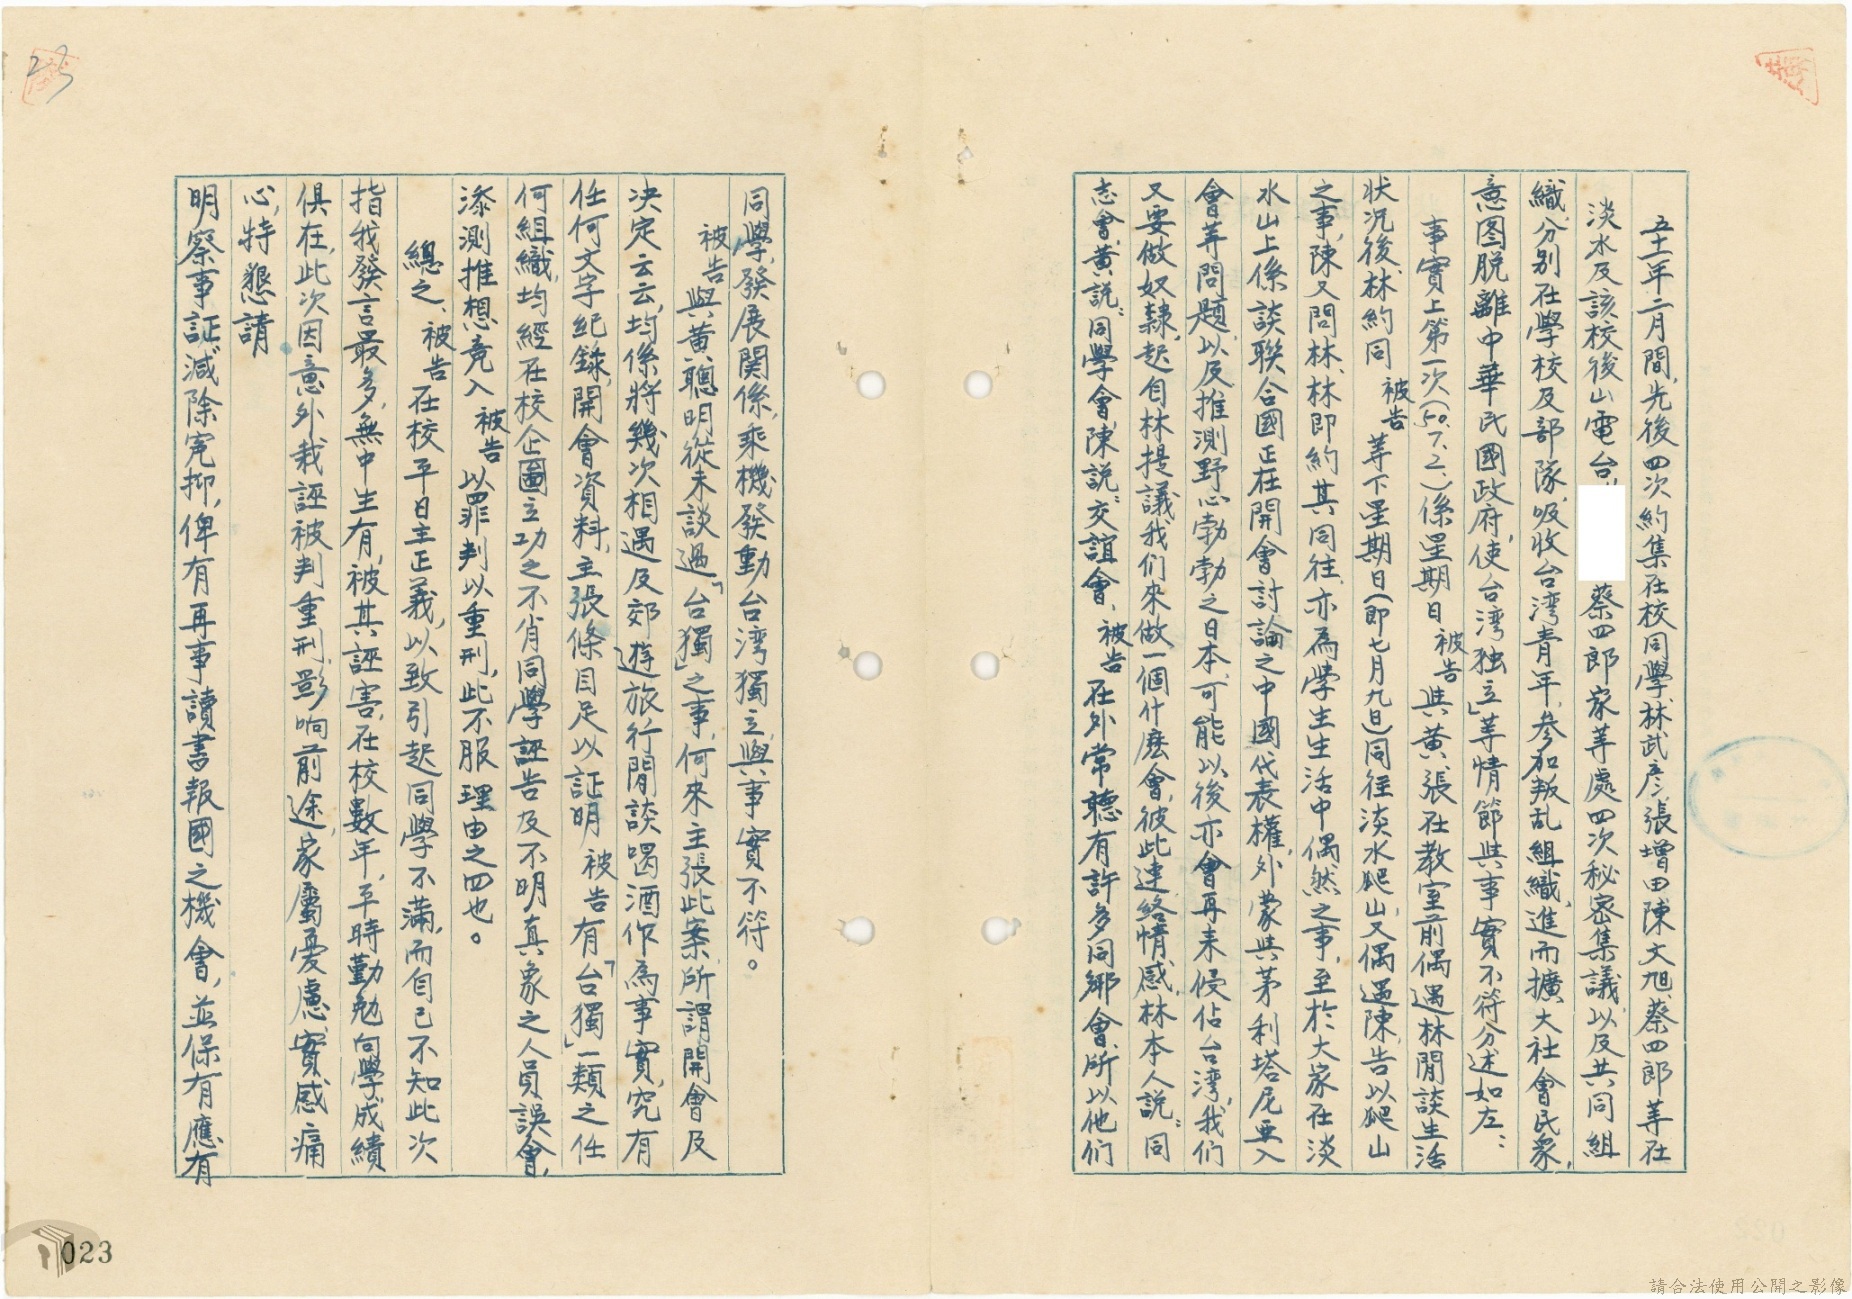 五十一年二月間,先後四次約集在校同學林武彥、張增田、陳文旭、蔡四郎等在
淡水及該校後山電台、蔡四郎家等處四次秘密集議,以及共同組
織,分別在學校及部隊,吸收台湾青年,參加叛乱組織,進而擴大社會民眾,
意图脱離中華民國政府,使「台湾独立」等情節與事實不符分述如左:
事實上第一次(50.7.2.)係星期日被告與黃、張在教室前偶遇林閒談生活
状况後,林約同被告等下星期日(即七月九日)同往淡水爬山,又偶遇陳,告以爬山
之事,陳又問林,林即約其同往,亦為學生生活中偶然之事,至於大家在淡
水山上係談聯合國正在開會討論之中國代表權,外蒙與茅利塔尼亞入
會等問題,以及推測野心勃勃之日本,可能以後亦會再來侵佔台湾,我们
又要做奴隸,起自林提議我们來做一個什麼會,彼此連絡情感,林本人說:同
志會,黃說:同學會,陳說:交誼會,被告在外常聽有許多同鄉會,所以他们
同學,發展関係,乘機發動台湾獨立,與事實不符。
被告與黃聰明從未談過「台獨」之事,何來主張此案,所謂開會及
决定云云,均係將幾次相遇及郊遊旅行閒談喝酒作為事實,究有
任何文字紀錄,開會資料,主張條目足以証明被告有「台獨」一類之任
何組織,均經在校企圖立功之不肖同學誣告及不明真象之人員誤會,
添測推想竟入被告以罪判以重刑,此不服理由之四也。
總之、被告在校平日主正義,以致引起同學不滿,而自己不知此次
指我發言最多,無中生有,被其誣害,在校數年,平時勤勉向學成績
俱在,此次因意外栽誣被判重刑,影响前途,家屬憂慮,實感痛
心,特懇請
明察事証,減除寃抑,俾有再事讀書報國之機會,並保有應有
023
請合法使用公開之影像